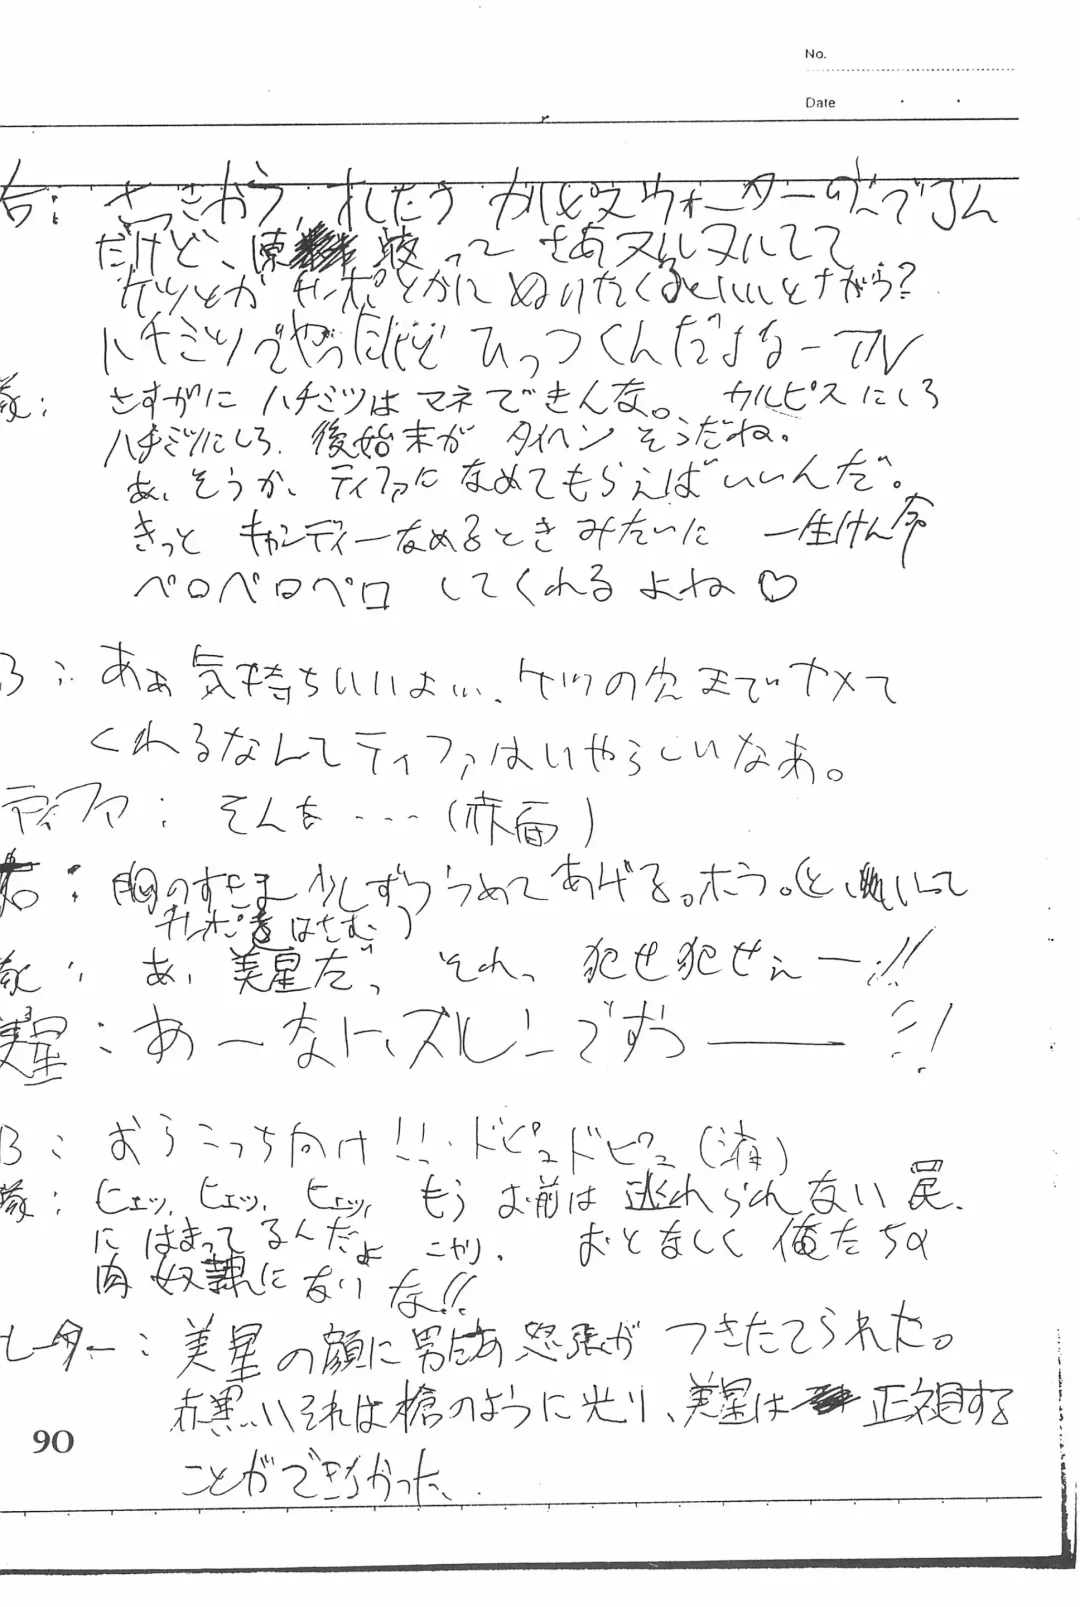 No.
Date
台: さっきかう,れしたう カルピスウォーターのんでるん
だけど、 液って さあヌルヌルしてて
ケツとか チンポとかに ぬりたくるといいとながら?
ハチミツでやったけどひっつくんだよなー
豚: さすがに ハチミツは マネできんな。 カルピスにしろ
ハチミツにしろ. 後始末が タイヘン そうだね。
あ、そうか、ティファに なめてもらえばいいんだ。
きっと キャンディーなめるとき みたいに 一生けん命
ペロペロペロ してくれる よね♡
B: あぁ気持ちいいよ…. ケツの穴までナメて
くれるなんてティファはいやらしいなあ。
ティファ: そんな・・・(赤面)
右: 胸のすきま少しずつうめてあげる。ホラ。(と、 いって
チンポをはさむ)
豚: あ、美星だっ それっ 犯せ犯せぇー!!
美星: あーなにズルーンですっ――!!
B: おらこっち向け!!・ドピュドピュ(液)
豚: ヒェッ, ヒェッ, ヒェッ, もう お前は 逃れられない 罠.
にはまってるんだよ ニヤリ. おとなしく 俺たちの
肉奴隷になりな!!
レーター: 美星の顔に男たちの怒張が つきたてられた。
赤黒いそれは槍のように光り、美星は 正視する
ことができなかった.
90